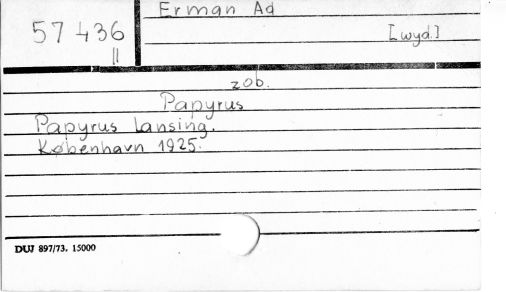 Erman Ad
57 436
II
[wyd.]
zob.
Papyrus
Papyrus Lansing.
København 1925.
DUJ 897/73. 15000